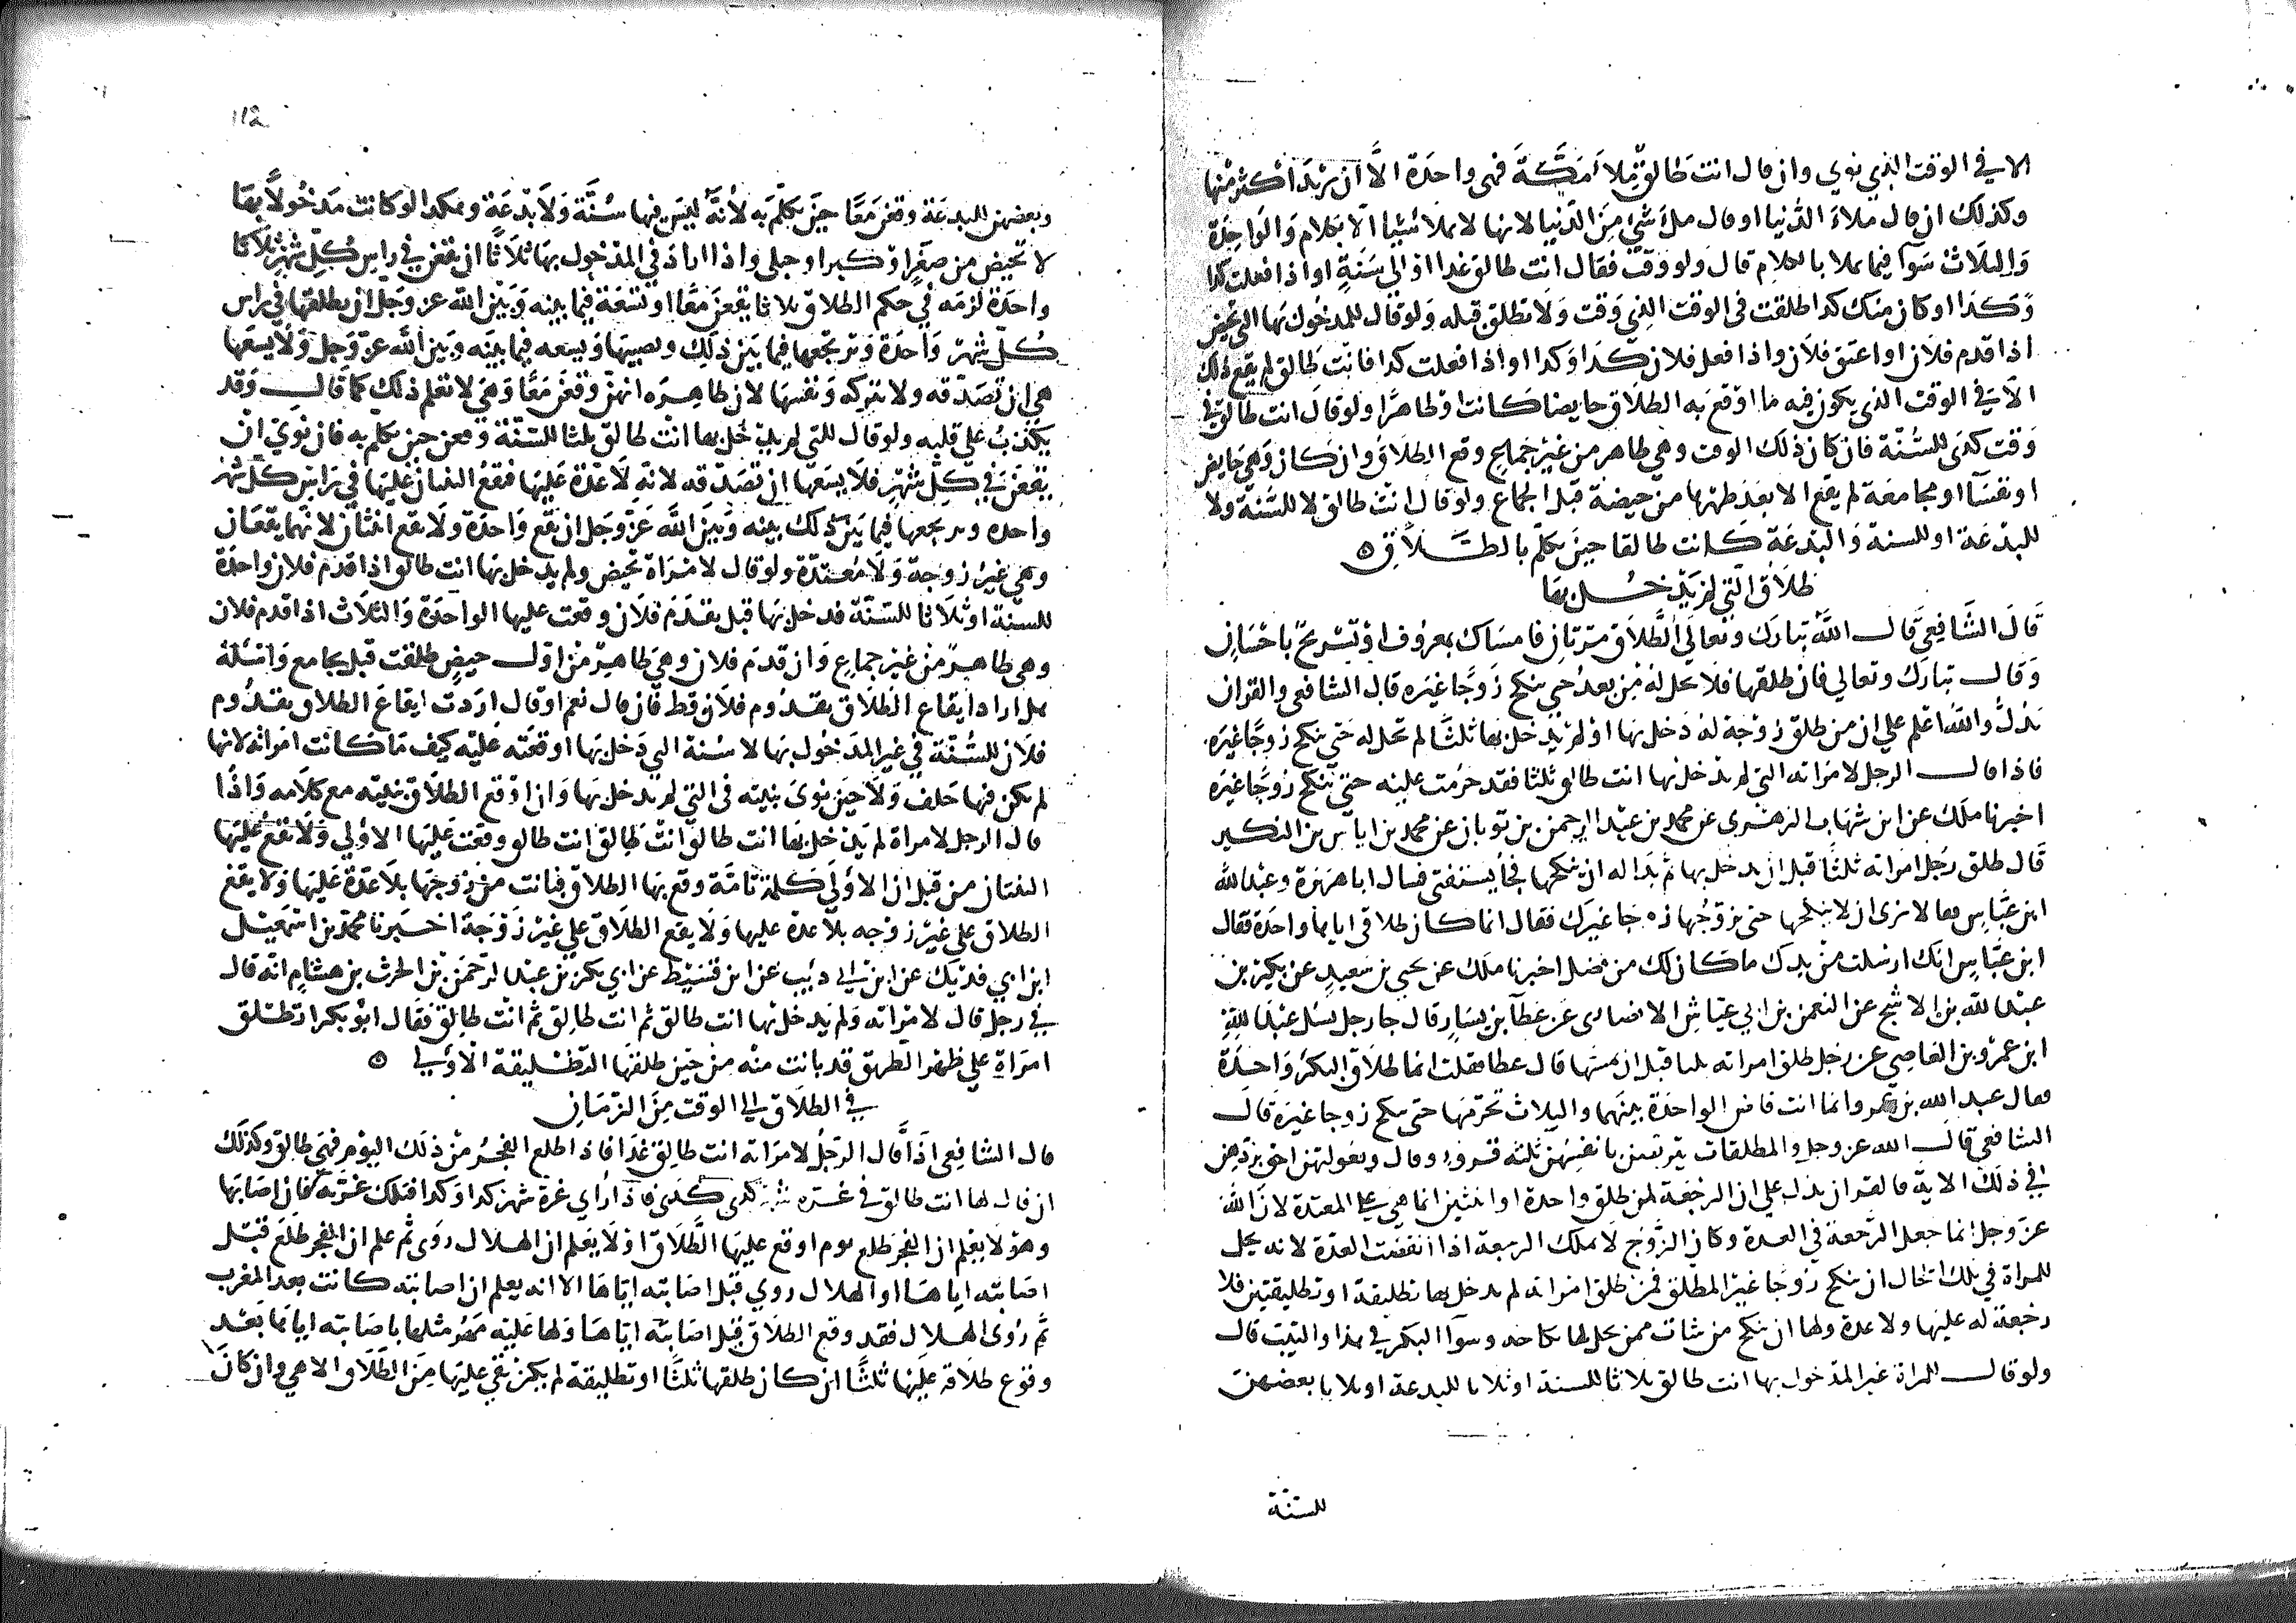 الا في الوقت الذي نوي وان قال انت طالق ملأ مكة فهي واحدة الا ان يريد اكثر منها
وكذلك ان قال ملاء الدنيا او قال ملء شيء من الدنيا لانها لا تملا شييا الا بكلام والواحدة
والثلاث سوآ فيما يملا بالكلام قال ولو وقت فقال انت طالق غدا او الى سنة او اذا فعلت كذا
وكذا او كان منك كذا طلقت في الوقت الذي وقت ولا تطلق قبله ولو قال للمدخول بها التي تحيض
اذا قدم فلان او اعتق فلان واذا فعل فلان كذا وكذا او اذا فعلت كذا فانت طالق لم يقع ذلك
الا في الوقت الذي يكون فيه ما اوقع به الطلاق حايضا كانت او طاهرا ولو قال انت طالق في
وقت كذى للسنة فان كان ذلك الوقت وهي طاهر من غير جماع وقع الطلاق وان كان وهي حايض
او نفسآ او مجامعة لم يقع الا بعد طهرها من حيضة قبل الجماع ولو قال انت طالق لا للسنة ولا
للبدعة او للسنة والبدعة كانت طالقا حين تكلم بالطلاق ه
طلاق التي لم يدخل بها
قال الشافعي قال الله تبارك وتعالي الطلاق مرتان فامساك بمعروف او تسريح باحسان
وقال تبارك وتعالي فان طلقها فلا تحل له من بعد حتي ينكح زوجا غيره قال الشافعي والقران
يدل والله اعلم علي ان من طلق زوجة له دخل بها او لم يدخل بها ثلثا لم تحل له حتي تنكح زوجا غيره
فاذا قال الرجل لامراته التي لم يدخل بها انت طالق ثلثا فقد حرمت عليه حتي تنكح زوجا غيره
اخبرنا ملك عن ابن شهاب الزهري عن محمد بن عبد الرحمن بن ثوبان عن محمد بن اياس بن البكير
قال طلق رجل امراته ثلثا قبل ان يدخل بها ثم بدا له ان ينكحها فجا يستفتي فسال ابا هريرة وعبد الله
ابن عباس فقالا لا نرى ان لا ينكحها حتي تزوجها زوجا غيرك فقال انما كان طلاقي اياها واحدة فقال
ابن عباس انك ارسلت من يدك ما كان لك من فضل اخبرنا ملك عن يحيي بن سعيد عن بكير بن
عبد الله بن الاشج عن النعمن بن ابي عياش الانصاري عن عطآ بن يسار قال جا رجل يسل عبد الله
ابن عمرو بن العاصي عن رجل طلق امراته ثلثا قبل ان يمسها قال عطا فقلت انما طلاق البكر واحدة
فقال عبد الله بن عمرو انما انت قاص الواحدة تبينها والثلاث تحرمها حتى تنكح زوجا غيره قال
الشافعي قال الله عز وجل والمطلقات يتربصن بانفسهن ثلثه قروء وقال وبعولتهن احق بردهن
في ذلك الاية فالقران يدل علي ان الرجعة لمن طلق واحدة او اثنتين انما هي علي المعتدة لان الله
عز وجل انما جعل الرجعة في العدة وكان الزوج لا يملك الرجعة اذا انقضت العدة لانه يحل
للمراة في تلك الحال ان تنكح زوجا غير المطلق فمن طلق امراته لم يدخل بها تطليقة او تطليقتين فلا
رجعة له عليها ولا عدة ولها ان تنكح من شات ممن يحل لها نكاحه وسوآ البكر في هذا والثيب قال
ولو قال للمراة غير المدخول بها انت طالق ثلاثا للسنة او ثلاثا للبدعة او ثلاثا بعضهن
للسنة
112
وبعضهن للبدعة وقعن معا حين تكلم به لأنه ليس فيها سنة ولا بدعة وهكذا لو كانت مدخولا بها
لا تحيض من صغر او كبر او حبلى واذا اراد في المدخول بها ثلاثا ان يقعن في راس كل شهر ثلاثا
واحدة لزمه في حكم الطلاق ثلاثا يقعن معا او تسعة فيما بينه وبين الله عز وجل ان يطلقها في راس
كل شهر واحدة ويرتجعها فيما بين ذلك ويصيبها ويسعه فيما بينه وبين الله عز وجل ولا يسعها
هي ان تصدقه ولا تتركه ونفسها لان ظاهره انهن وقعن معا وهي لا تعلم ذلك كما قال وقد
يكذب علي قلبه ولو قال للتي لم يدخل بها انت طالق ثلثا للسنة وقعن حين تكلم به فان نوي ان
يقعن في كل شهر فلا يسعها ان تصدقه لانه لا عدة عليها فتقع الثنتان عليها في راس كل شهر
واحده ويرتجعها فيما بين ذلك بينه وبين الله عز وجل ان تقع واحدة ولا تقع اثنتان لانهما يقعان
وهي غير زوجة ولا معتدة ولو قال لامراة تحيض ولم يدخل بها انت طالق اذا قدم فلان واحدة
للسنة او ثلاثا للسنة فدخل بها قبل يقدم فلان وقعت عليها الواحدة والثلاث اذا قدم فلان
وهي طاهر من غير جماع وان قدم فلان وهي طاهر من اول حيض طلقت قبل يجامع واسئله
هل اراد ايقاع الطلاق بقدوم فلان قط فان قال نعم او قال اردت ايقاع الطلاق بقدوم
فلان للسنة في غير المدخول بها لا سنة التي دخل بها اوقعته عليه كيف ما كانت امراته لانها
لم تكن فيها حلف ولا حين نوى بنيته في التي لم يدخل بها وان اوقع الطلاق بنيته مع كلامه واذا
قال الرجل لامراة لم يدخل بها انت طالق انت طالق انت طالق وقعت عليها الاولي ولا تقع عليها
الثنتان من قبل ان الاولي كلمة تامة وقع بها الطلاق فبانت من زوجها بلا عدة عليها ولا يقع
الطلاق علي غير زوجه بلا عدة عليها ولا يقع الطلاق علي غير زوجة اخبرنا محمد بن اسمعيل
ابن ابي فديك عن ابن ابي ذئيب عن ابن قسيط عن ابي بكر بن عبد الرحمن بن الحرث بن هشام انه قال
في رجل قال لامراته ولم يدخل بها انت طالق ثم انت طالق ثم انت طالق فقال ابو بكر اتطلق
امراة علي ظهر الطريق قد بانت منه من حين طلقها التطليقة الاولي ه
في الطلاق الي الوقت من الزمان
قال الشافعي اذا قال الرجل لامراته انت طالق غدا فاذا طلع الفجر من ذلك اليوم فهي طالق وكذلك
ان قال لها انت طالق في غره شهر كذى كذى فاذا رأي غرة شهر كذا وكذا فتلك غرته فان اصابها
وهو لا يعلم ان الفجر طلع يوم اوقع عليها الطلاق او لا يعلم ان الهلال روى ثم علم ان الفجر طلع قبل
اصابته اياها او الهلال روي قبل اصابته اياها الا انه يعلم ان اصابته كانت بعد المغرب
ثم روى الهلال فقد وقع الطلاق قبل اصابته اياها ولها عليه مهر مثلها باصابته اياها بعد
وقوع طلاقه عليها ثلثا ان كان طلقها ثلثا او تطليقة لم يكن بقي عليها من الطلاق الا هي وان كان